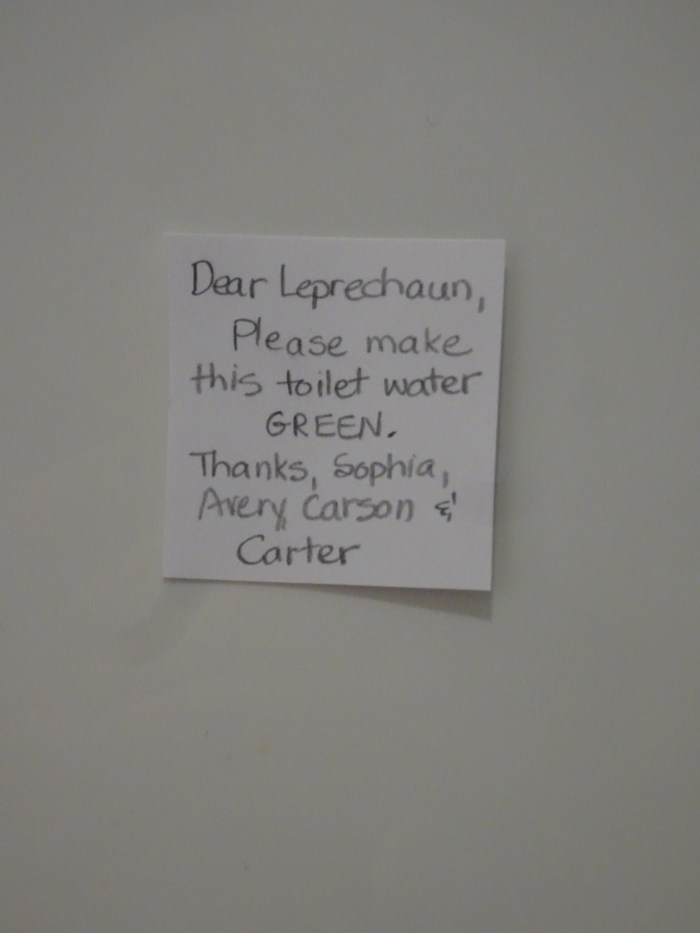 Dear Leprechaun,
Please make
this toilet water
GREEN.
Thanks, Sophia,
Avery, Carson &
Carter